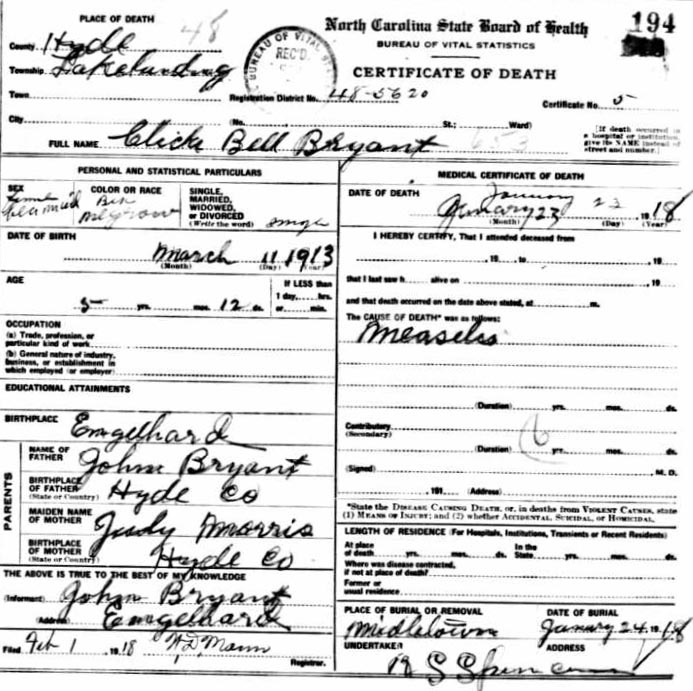 PLACE OF DEATH
48
North Carolina State Board of Health
194
BUREAU OF VITAL STATISTICS
County Hyde
BUREAU OF VITAL
REC'D
Township Lakelanding
CERTIFICATE OF DEATH
Town
Registration District No. 48-5620
Certificate No. 5
City
(No. St.; Ward)
653
[If death occurred in
a hospital or institution,
give its NAME instead of
street and number.]
FULL NAME Click Bell Bryant
PERSONAL AND STATISTICAL PARTICULARS
SEX
COLOR OR RACE
SINGLE,
MARRIED,
WIDOWED,
or DIVORCED
(Write the word) single
DATE OF BIRTH
March 11 1913
(Month) (Day) (Year)
AGE
If LESS than
1 day, hrs.
or min.
5 yrs. mos. 12 ds.
OCCUPATION
(a) Trade, profession, or
particular kind of work
(b) General nature of industry,
business, or establishment in
which employed (or employer)
EDUCATIONAL ATTAINMENTS
BIRTHPLACE Emgelhard
PARENTS
NAME OF
FATHER John Bryant
BIRTHPLACE
OF FATHER
(State or Country) Hyde Co
MAIDEN NAME
OF MOTHER Judy Morris
BIRTHPLACE
OF MOTHER
(State or Country) Hyde Co
THE ABOVE IS TRUE TO THE BEST OF MY KNOWLEDGE
(Informant) John Bryant
(Address) Emgelhard
Filed Feb 1 1918 W D Mann
Registrar.
MEDICAL CERTIFICATE OF DEATH
DATE OF DEATH
January 23
January 23 1918
(Month) (Day) (Year)
I HEREBY CERTIFY, That I attended deceased from
, 19 to , 19
that I last saw h alive on , 19
and that death occurred on the date above stated, at m.
The CAUSE OF DEATH* was as follows:
Measeles
(Duration) yrs. mos. ds.
Contributory
(Secondary)
6
(Duration) yrs. mos. ds.
(Signed) M. D.
, 191 (Address)
*State the DISEASE CAUSING DEATH, or, in deaths from VIOLENT CAUSES, state
(1) MEANS OF INJURY; and (2) whether ACCIDENTAL, SUICIDAL, or HOMICIDAL.
LENGTH OF RESIDENCE (For Hospitals, Institutions, Transients or Recent Residents)
At place
of death yrs. mos. ds.
In the
State yrs. mos. ds.
Where was disease contracted,
if not at place of death?
Former or
usual residence
PLACE OF BURIAL OR REMOVAL
Middletown
DATE OF BURIAL
January 24 1918
UNDERTAKER
R S Spencer
ADDRESS